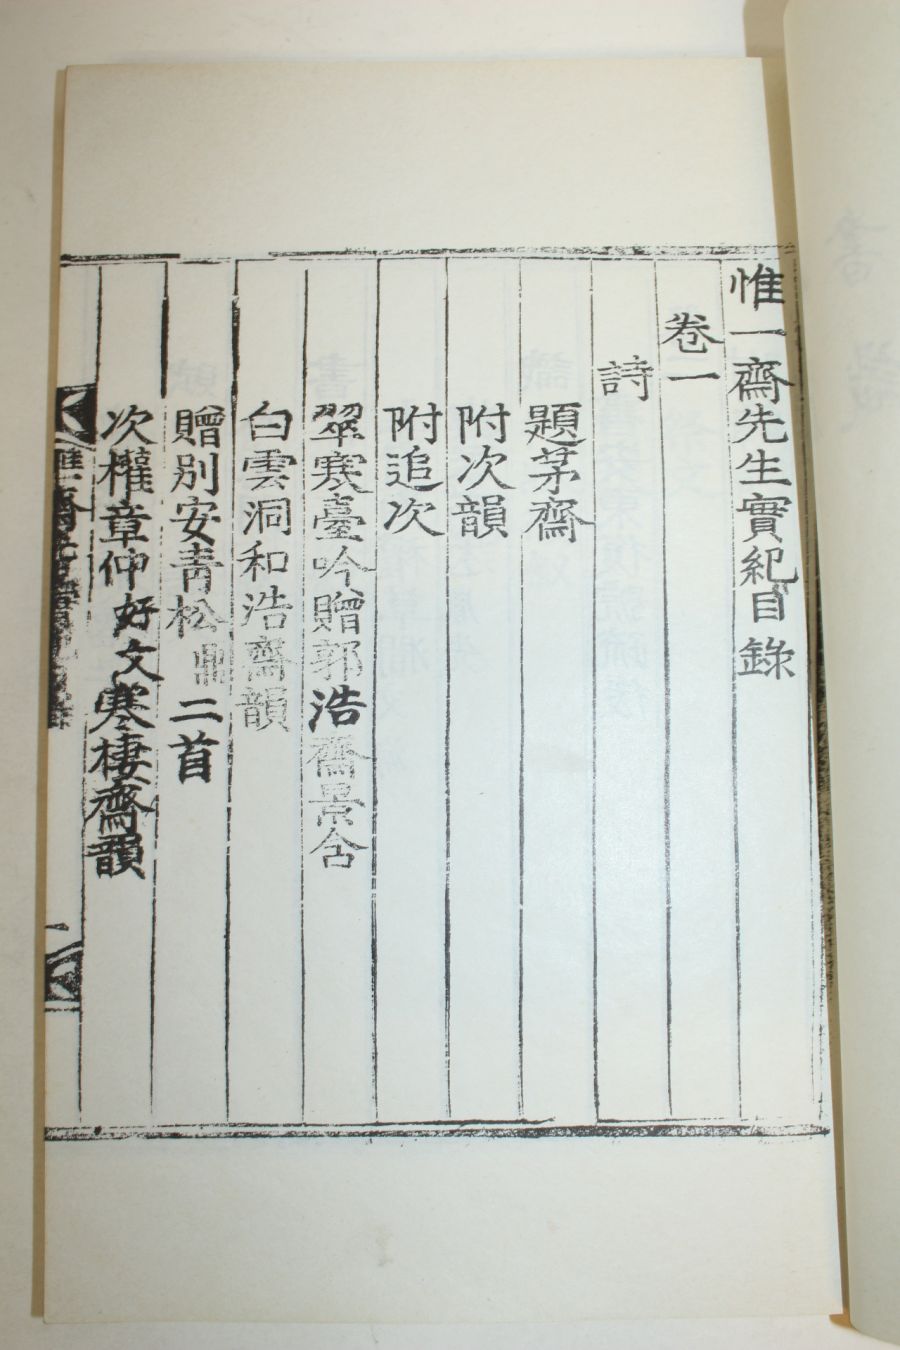 惟一齋先生實紀目錄
卷一
詩
題茅齋
附次韻
附追次
翠寒臺吟贈郭浩齋景含
白雲洞和浩齋韻
贈別安靑松鼎二首
次權章仲好文寒棲齋韻